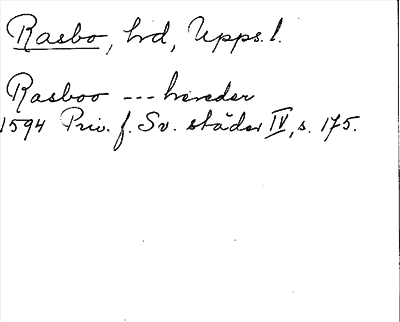 Rasbo, hd, Upps. l.
Rasboo --- hereder
1594 Priv. f. Sv. städer IV, s. 175.